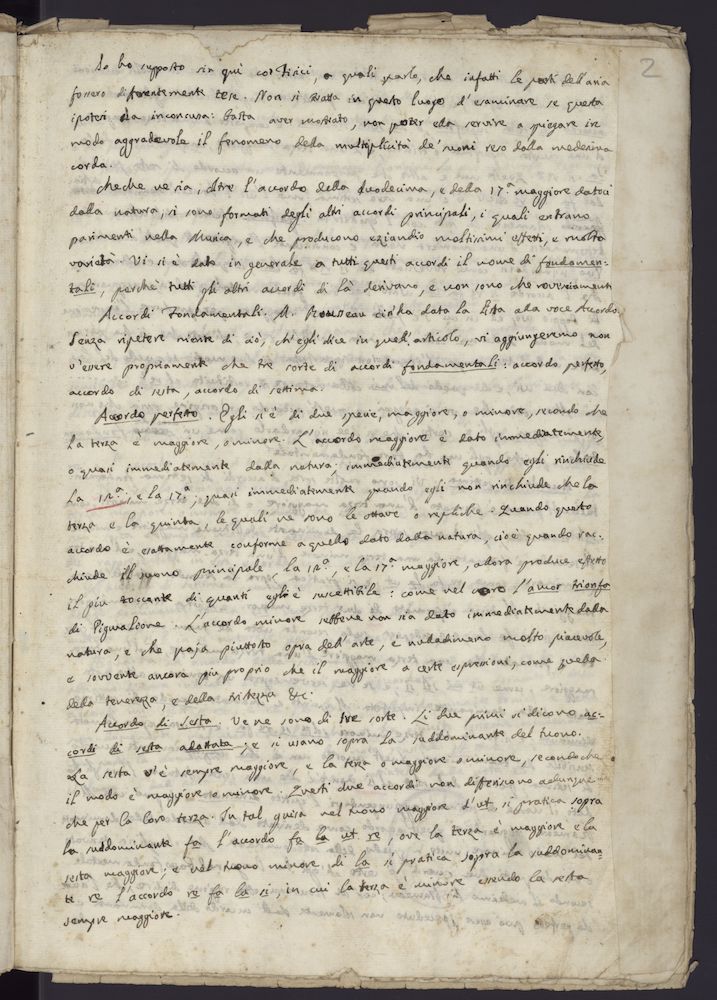 2
Io ho supposto sin quì coi Fisici, a quali parlo, che infatti le parti dell'aria
fossero differentemente tese. Non si tratta in questo luogo d'esaminare se questa
ipotesi sia inconcusa: basta aver mostrato, non poter ella servire a spiegare in
modo aggradevole il fenomeno della multiplicità de' suoni reso dalla medesima
corda.
Checche ne sia, oltre l'accordo della duodecima, e della 17.ª maggiore datoci
dalla natura, si sono formati degli altri accordi principali, i quali entrano
parimenti nella Musica, e che producono eziandio moltissimi effetti, e molta
varietà. Vi si è dato in generale a tutti questi accordi il nome di fondamen-
tali, perchè tutti gli altri accordi di là derivano, e non sono che rovesciamenti
Accordi Fondamentali. M. Rousseau ci ha data la lista alla voce Accordo.
Senza ripetere niente di ciò, ch'egli dice in quell'articolo, vi aggiungeremo non
v'essere propriamente che tre sorte di accordi fondamentali: accordo perfetto,
accordo di sesta, accordo di settima.
Accordo perfetto. Egli si è di due specie, maggiore, o minore, secondo che
la terza è maggiore, o minore. L'accordo maggiore è dato immediatemente,
o quasi immediatemente dalla natura; immediatemente quando egli rinchiude
la 12.ª, e la 17.ª; quasi immediatemente quando egli non rinchiude che la
terza e la quinta, le quali ne sono le ottave o repliche. Quando questo
accordo è esattamente conforme a quello dato dalla natura, cioè quando rac-
chiude il suono principale, la 12.ª, e la 17.ª maggiore, allora produce effetto
il più toccante di quanti egli è suscettibile: come nel coro l'amor trionfa
di Pigmaleone. L'accordo minore sebbene non sia dato immediatemente dalla
natura, e che paja piuttosto opra dell'arte, è nulladimeno molto piacevole,
e sovvente ancora più proprio che il maggiore a certe espressioni, come quella
della tenerezza, e della tristezza &c.
Accordo di Sesta. Ve ne sono di tre sorte. Li due primi si dicono ac-
cordi di sesta adattata; e si usano sopra la suddominante del tuono.
La sesta v'è sempre maggiore, e la terza o maggiore o minore, secondo che
il modo è maggiore o minore. Questi due accordi non differiscono adunque
che per la loro terza. In tal guisa nel tuono maggiore d'ut, si pratica sopra
la suddominante fa l'accordo fa la ut re, ove la terza è maggiore e la
sesta maggiore; e nel tuono minore di la si pratica sopra la suddominan-
te re l'accordo re fa la si, in cui la terza è minore essendo la sesta
sempre maggiore.